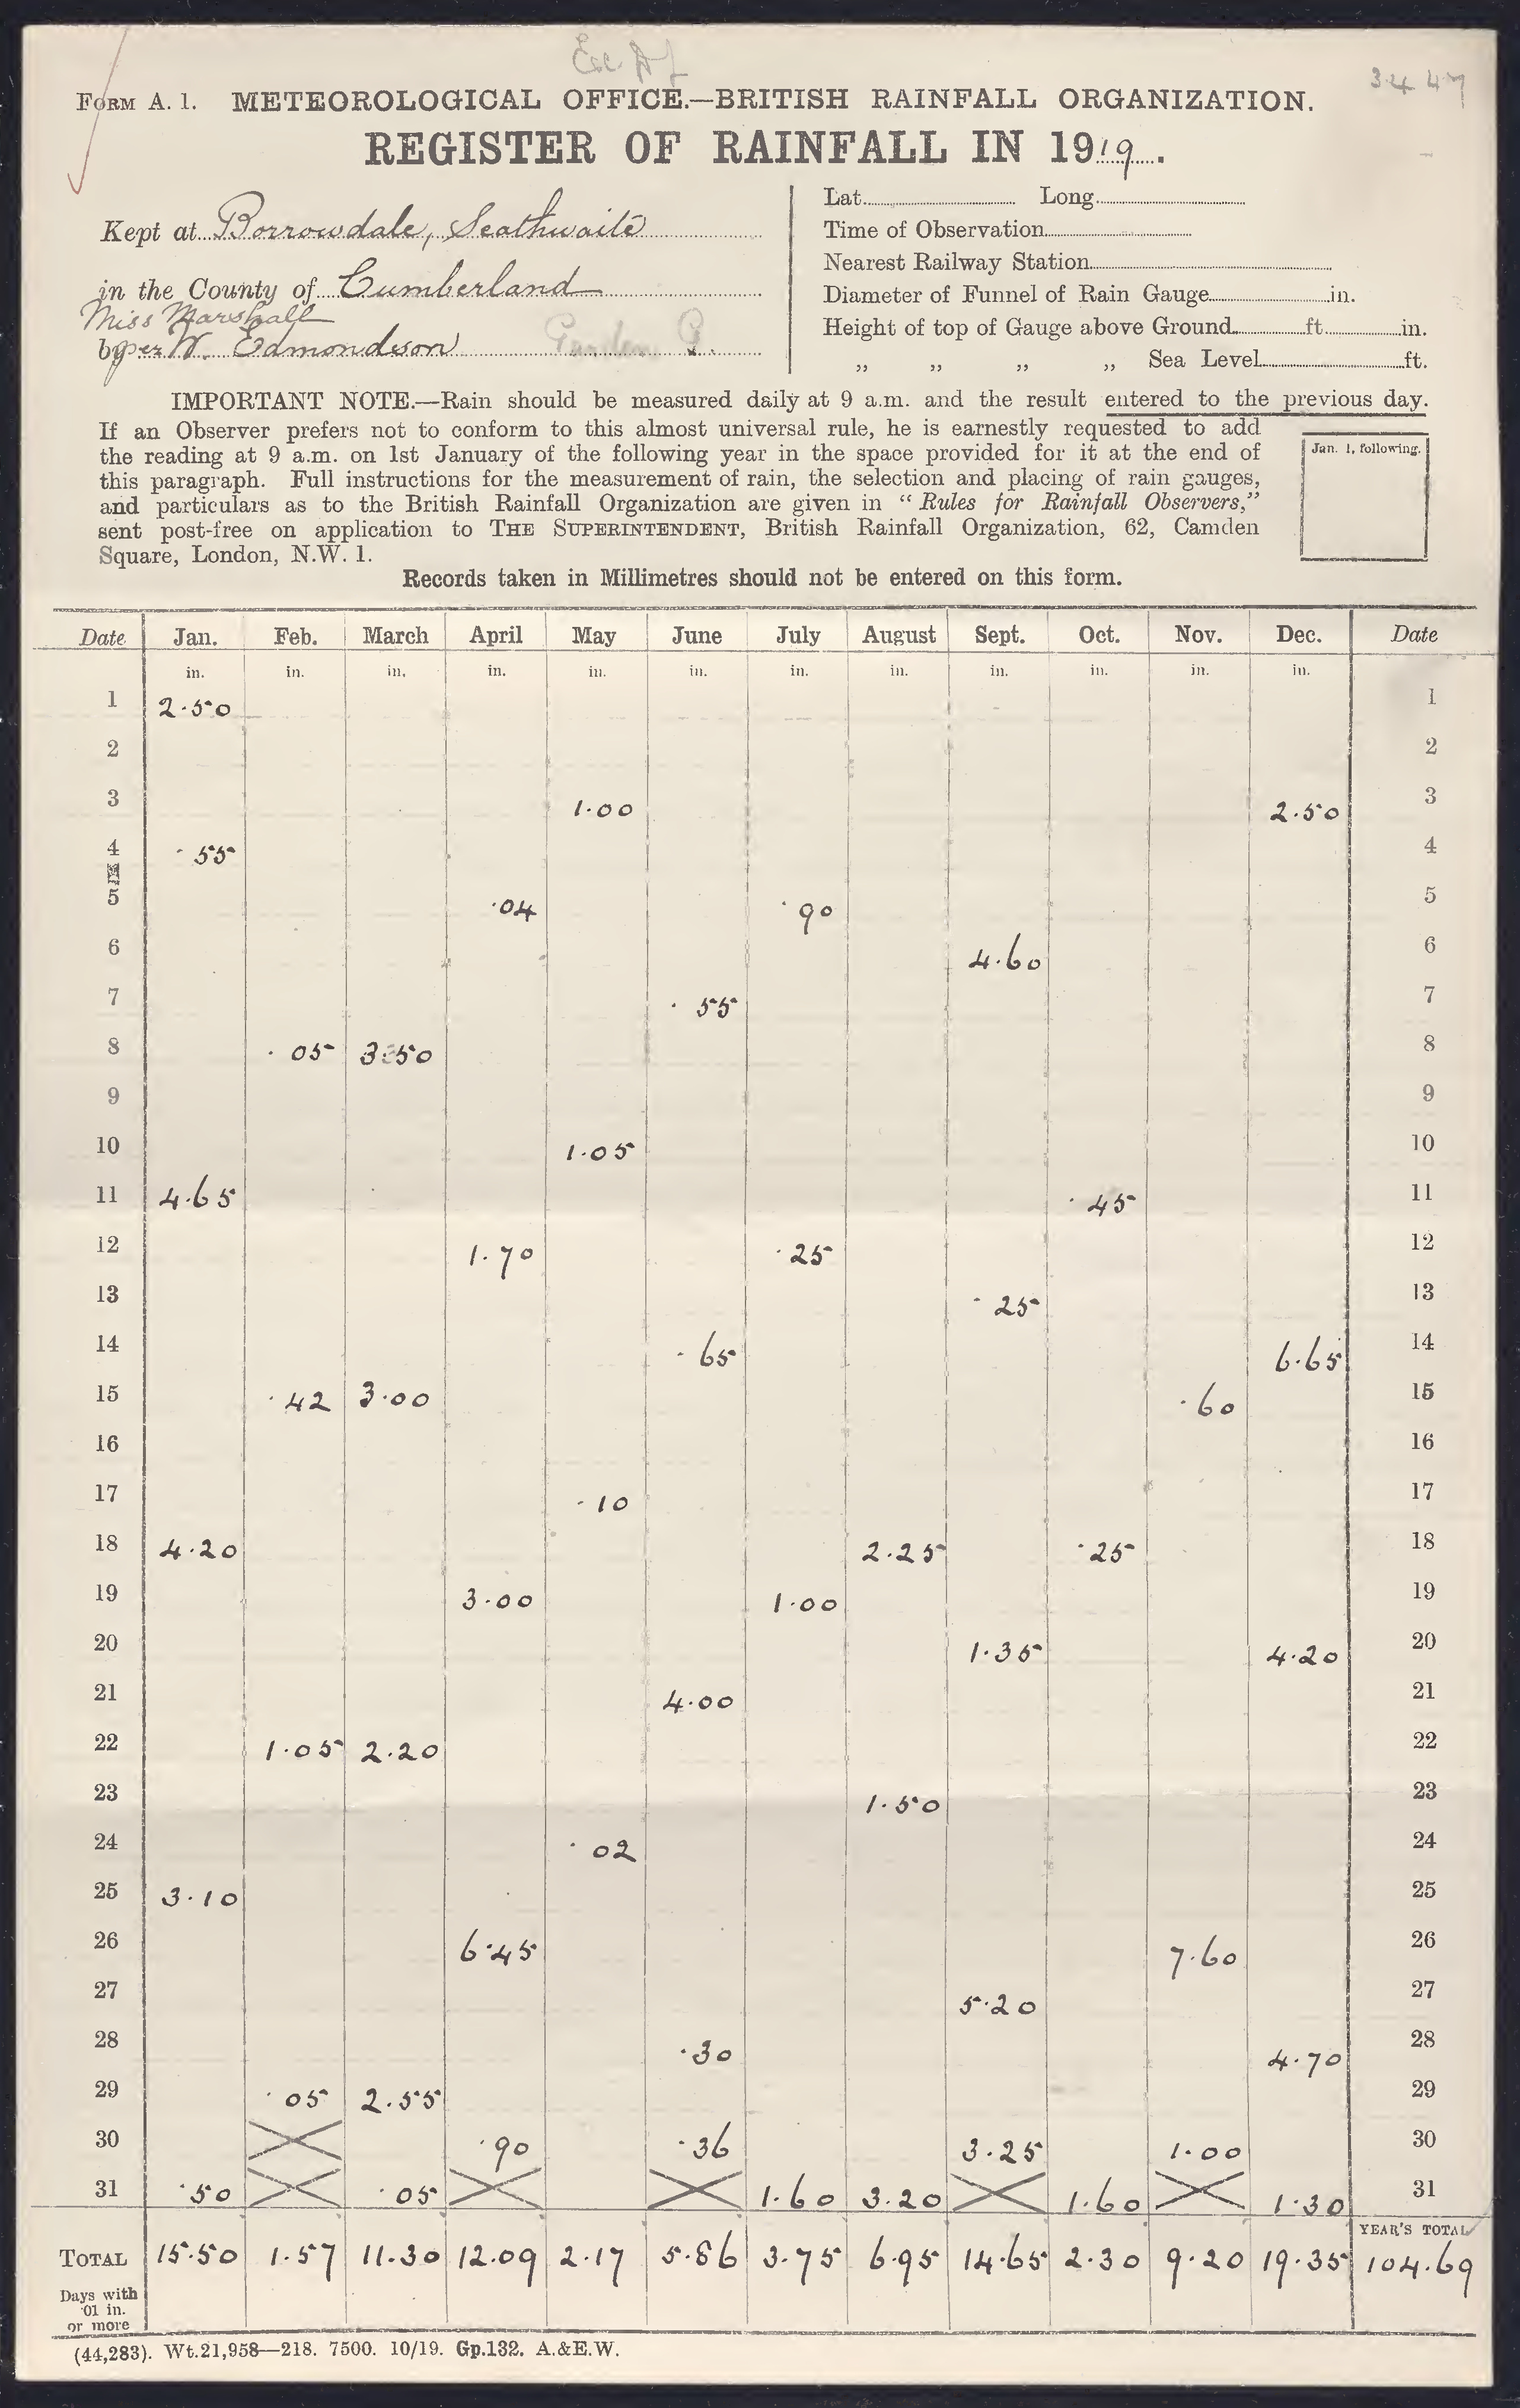 Esc. Af
3447
FORM A. 1. METEOROLOGICAL OFFICE.—BRITISH RAINFALL ORGANIZATION.
REGISTER OF RAINFALL IN 1919.
Kept at Borrowdale, Seathwaite
in the County of Cumberland
Miss Marshall
by per W. Edmondson Garden G.
Lat. Long.
Time of Observation
Nearest Railway Station
Diameter of Funnel of Rain Gauge in.
Height of top of Gauge above Ground ft. in.
„ „ „ „ Sea Level ft.
IMPORTANT NOTE.—Rain should be measured daily at 9 a.m. and the result entered to the previous day.
If an Observer prefers not to conform to this almost universal rule, he is earnestly requested to add
the reading at 9 a.m. on 1st January of the following year in the space provided for it at the end of
this paragraph. Full instructions for the measurement of rain, the selection and placing of rain gauges,
and particulars as to the British Rainfall Organization are given in “Rules for Rainfall Observers,”
sent post-free on application to THE SUPERINTENDENT, British Rainfall Organization, 62, Camden
Square, London, N.W. 1.
Jan. 1, following.
Records taken in Millimetres should not be entered on this form.
Date Jan. Feb. March April May June July August Sept. Oct. Nov. Dec. Date
in. in. in. in. in. in. in. in. in. in. in. in.
1 2.50 1
2 2
3 1.00 2.50 3
4 .55 4
5 .04 .90 5
6 4.60 6
7 .55 7
8 .05 3.50 8
9 9
10 1.05 10
11 4.65 .45 11
12 1.70 .25 12
13 .25 13
14 .65 6.65 14
15 .42 3.00 .60 15
16 16
17 .10 17
18 4.20 2.25 .25 18
19 3.00 1.00 19
20 1.35 4.20 20
21 4.00 21
22 1.05 2.20 22
23 1.50 23
24 .02 24
25 3.10 25
26 6.45 7.60 26
27 5.20 27
28 .30 4.70 28
29 .05 2.55 29
30 .90 .36 3.25 1.00 30
31 .50 .05 1.60 3.20 1.60 1.30 31
YEAR'S TOTAL
TOTAL 15.50 1.57 11.30 12.09 2.17 5.86 3.75 6.95 14.65 2.30 9.20 19.35 104.69
Days with
·01 in.
or more
(44,283). Wt.21,958—218. 7500. 10/19. Gp.132. A.&E.W.